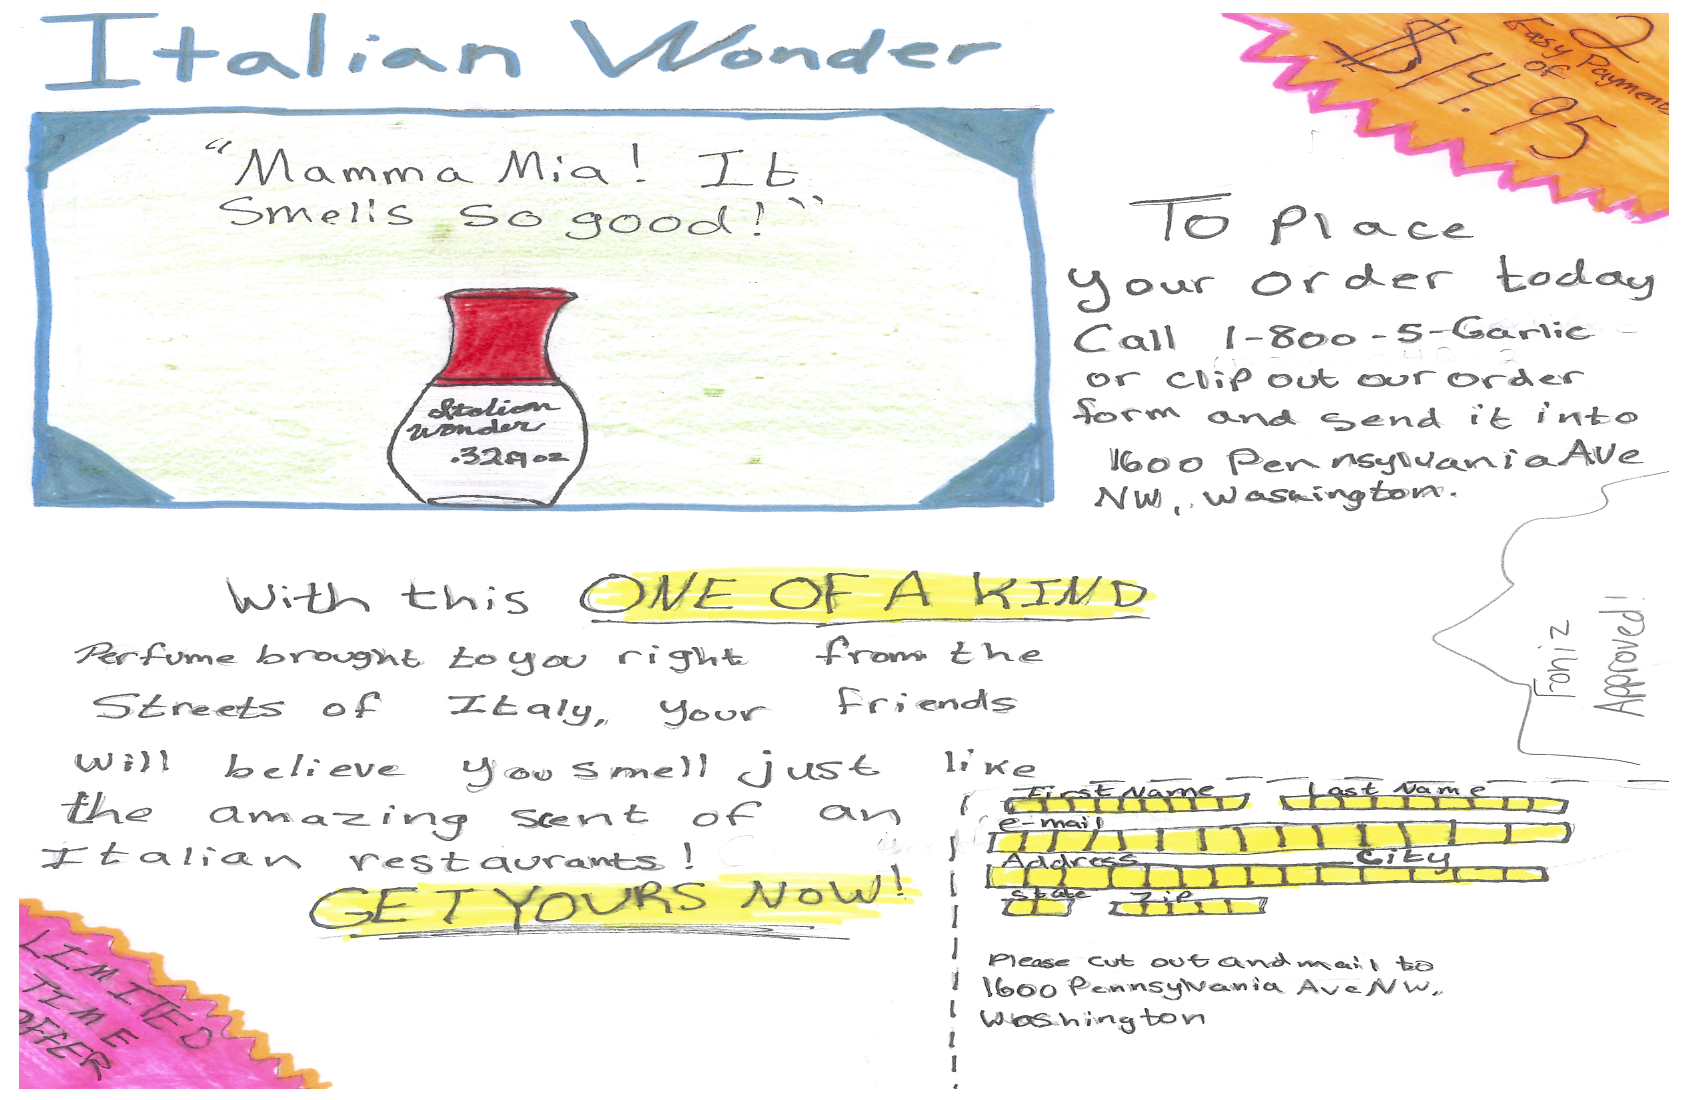 Italian Wonder
2
Easy Payment
of
$14.95
"Mamma Mia! It
Smells so good!"
Italian
Wonder
.32fl oz
To Place
your order today
Call 1-800-5-Garlic
or clip out our order
form and send it into
1600 Pennsylvania Ave
NW, Washington.
Foniz
Approved!
With this ONE OF A KIND
Perfume brought to you right from the
Streets of Italy, your friends
will believe you smell just like
the amazing scent of an
Italian restaurants!
GET YOURS NOW!
LIMITED
TIME
OFFER
First Name Last Name
e-mail
Address City
State Zip
Please cut out and mail to
1600 Pennsylvania Ave NW,
Washington